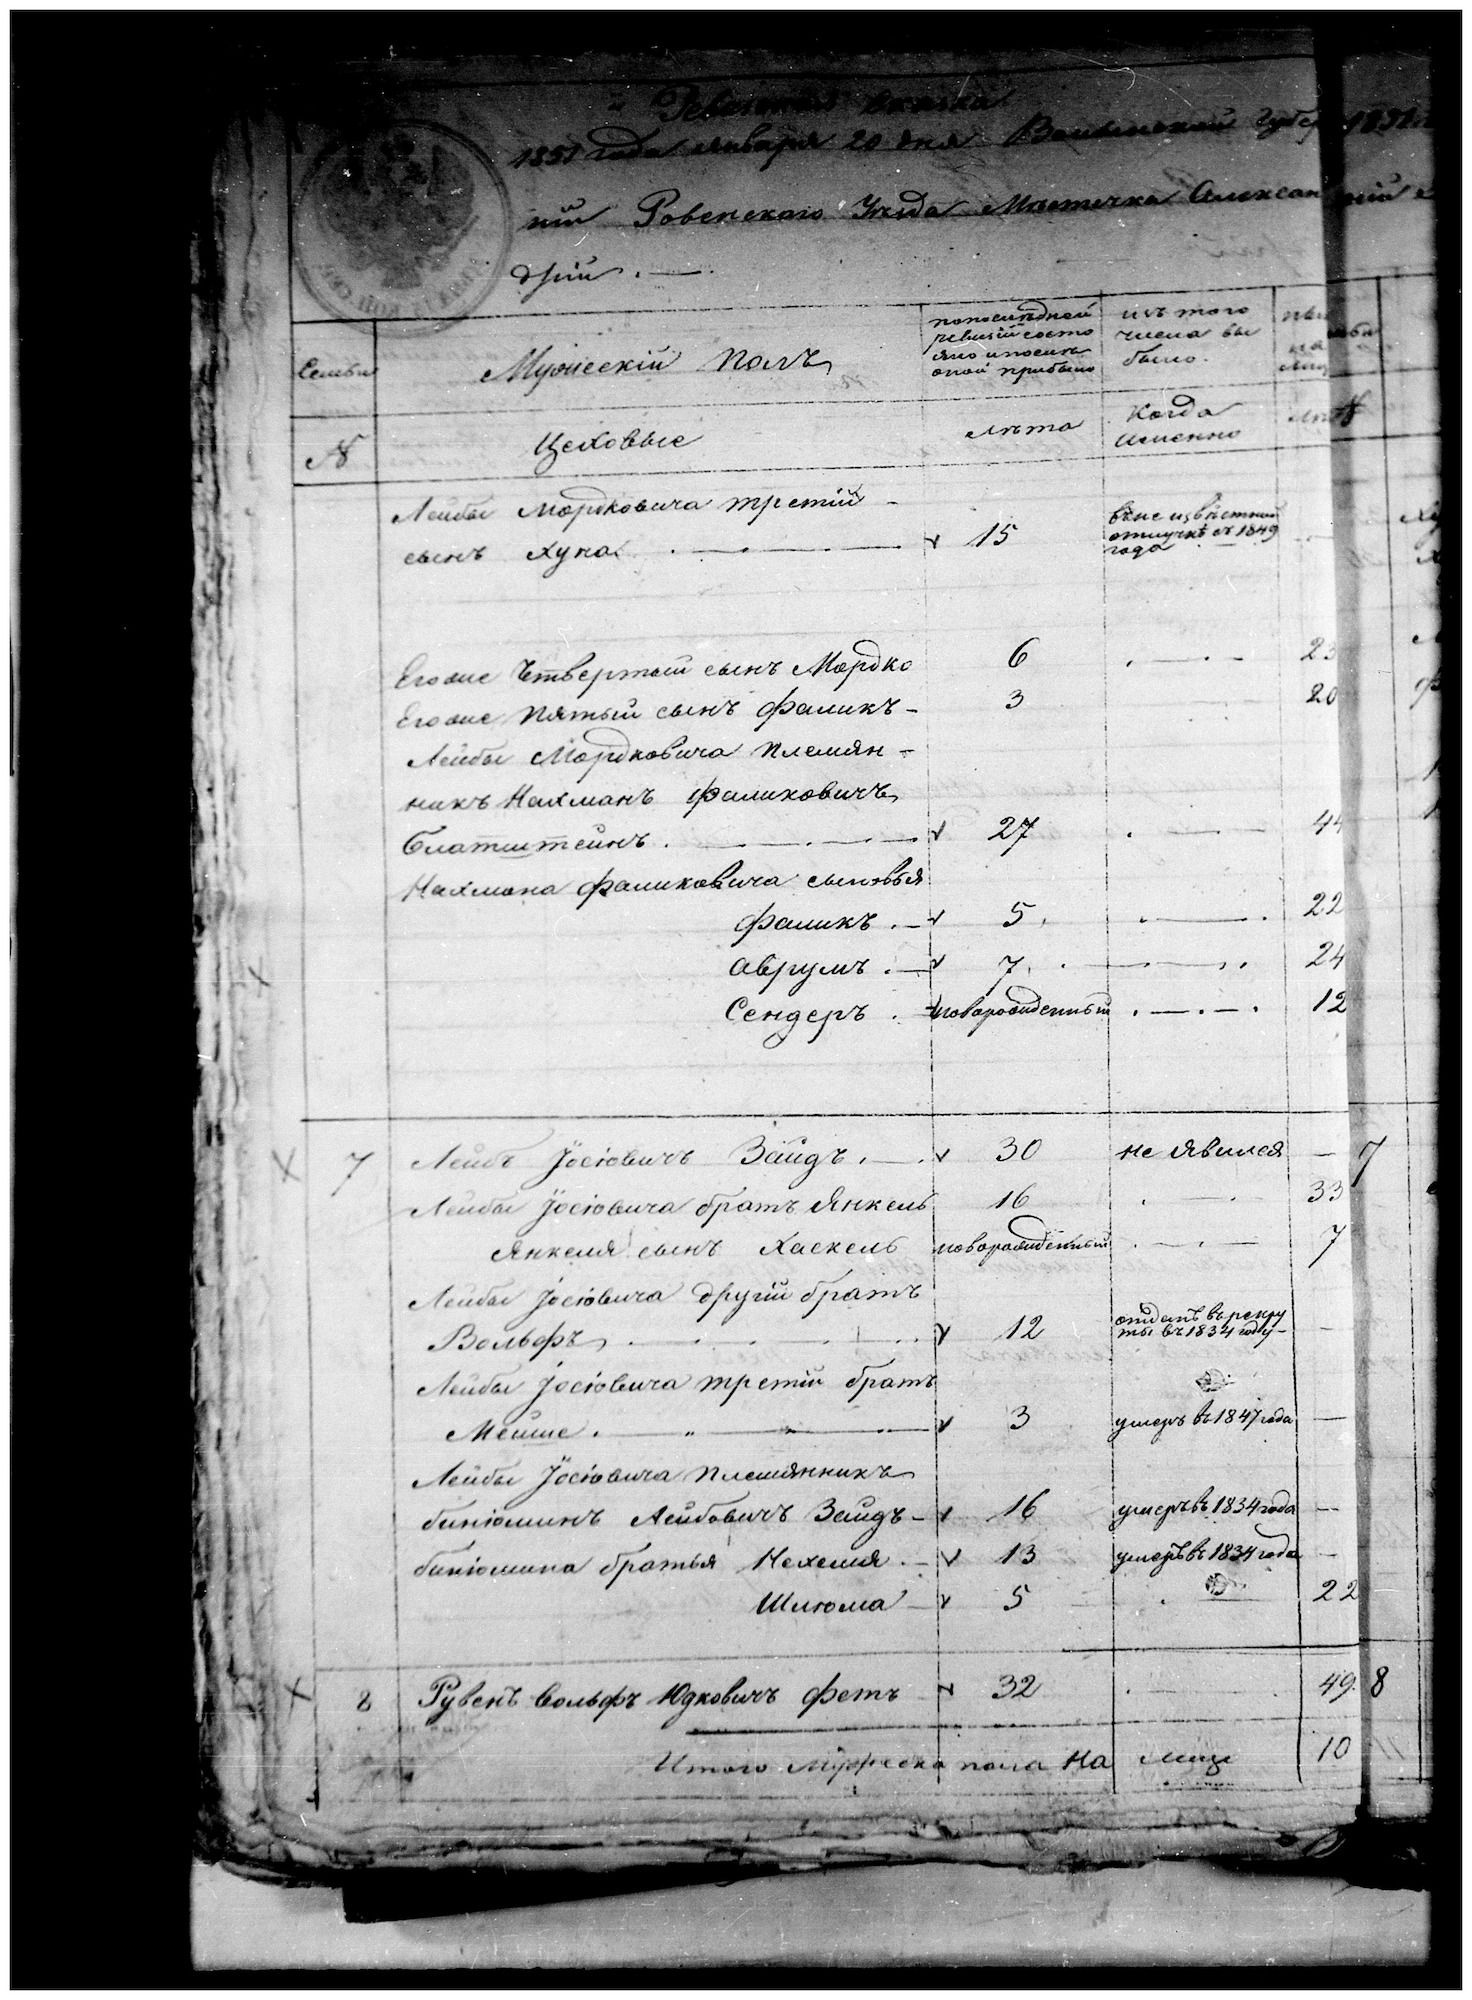 Ревизская сказка
1851 года января 20 дня Волынской Губер
ніи Ровенскаго Уѣзда Мѣстечка Алексан
дріи . —
Семьи
Мужескій полъ
по последней
ревизіи состо
яло и послѣ
оной прибыло
изъ того
числа вы
было.
на
лиц
№
Цеховые
лѣта
Когда
именно
лѣт
Лейбы Мордковича третій -
сынъ Хуна . — 15
въ не извѣстной
отлучкѣ съ 1849
года
Его же Четвертый сынъ Мордко 6 . — 23
Его же Пятый сынъ Фаликъ - 3 20
Лейбы Мордковича племян -
никъ Нахманъ Фаликовичъ
Блатштейнъ . — 27 . — 44
Нахмана Фаликовича сыновья
Фаликъ . — 5 . — . 22
Аврумъ . — 7 . — 24
Сендеръ . новорожденный . — . — . 12
7 Лейбъ Іосіовичъ Зайдъ . — 30 не явился — 7
Лейбы Іосіовича братъ Янкель 16 . — . 33
Янкеля сынъ Хаскель новорожденный . — . — 7
Лейбы Іосіовича другій братъ
Вольфъ . . . . 12 отданъ въ рекру
ты въ 1834 году — —
Лейбы Іосіовича третій братъ
Мейше . — 3 умеръ въ 1847 года —
Лейбы Іосіовича племянникъ
Биніоминъ Лейбовичъ Зайдъ — 16 умеръ въ 1834 года —
Биніомина братья Нехемія . — 13 умеръ въ 1834 года —
Шлиома — 5 . — 22
8 Рувенъ Вольфъ Юдковичъ Фетъ 32 . — . 49 8
Итого мужеска пола на лице 10